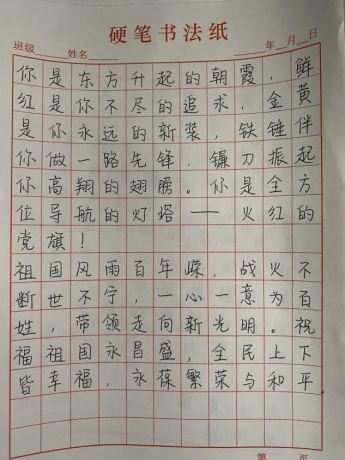 硬笔书法纸
班级 姓名 年 月 日
你是东方升起的朝霞，鲜
红是你不尽的追求，金黄
是你永远的新装，铁锤伴
你做一路先锋，镰刀振起
你高翔的翅膀。你是全方
位导航的灯塔——火红的
党旗！
祖国风雨百年嵘，战火不
断世不宁，一心一意为百
姓，带领走向新光明。祝
福祖国永昌盛，全民上下
皆幸福，永葆繁荣与和平.
第 页